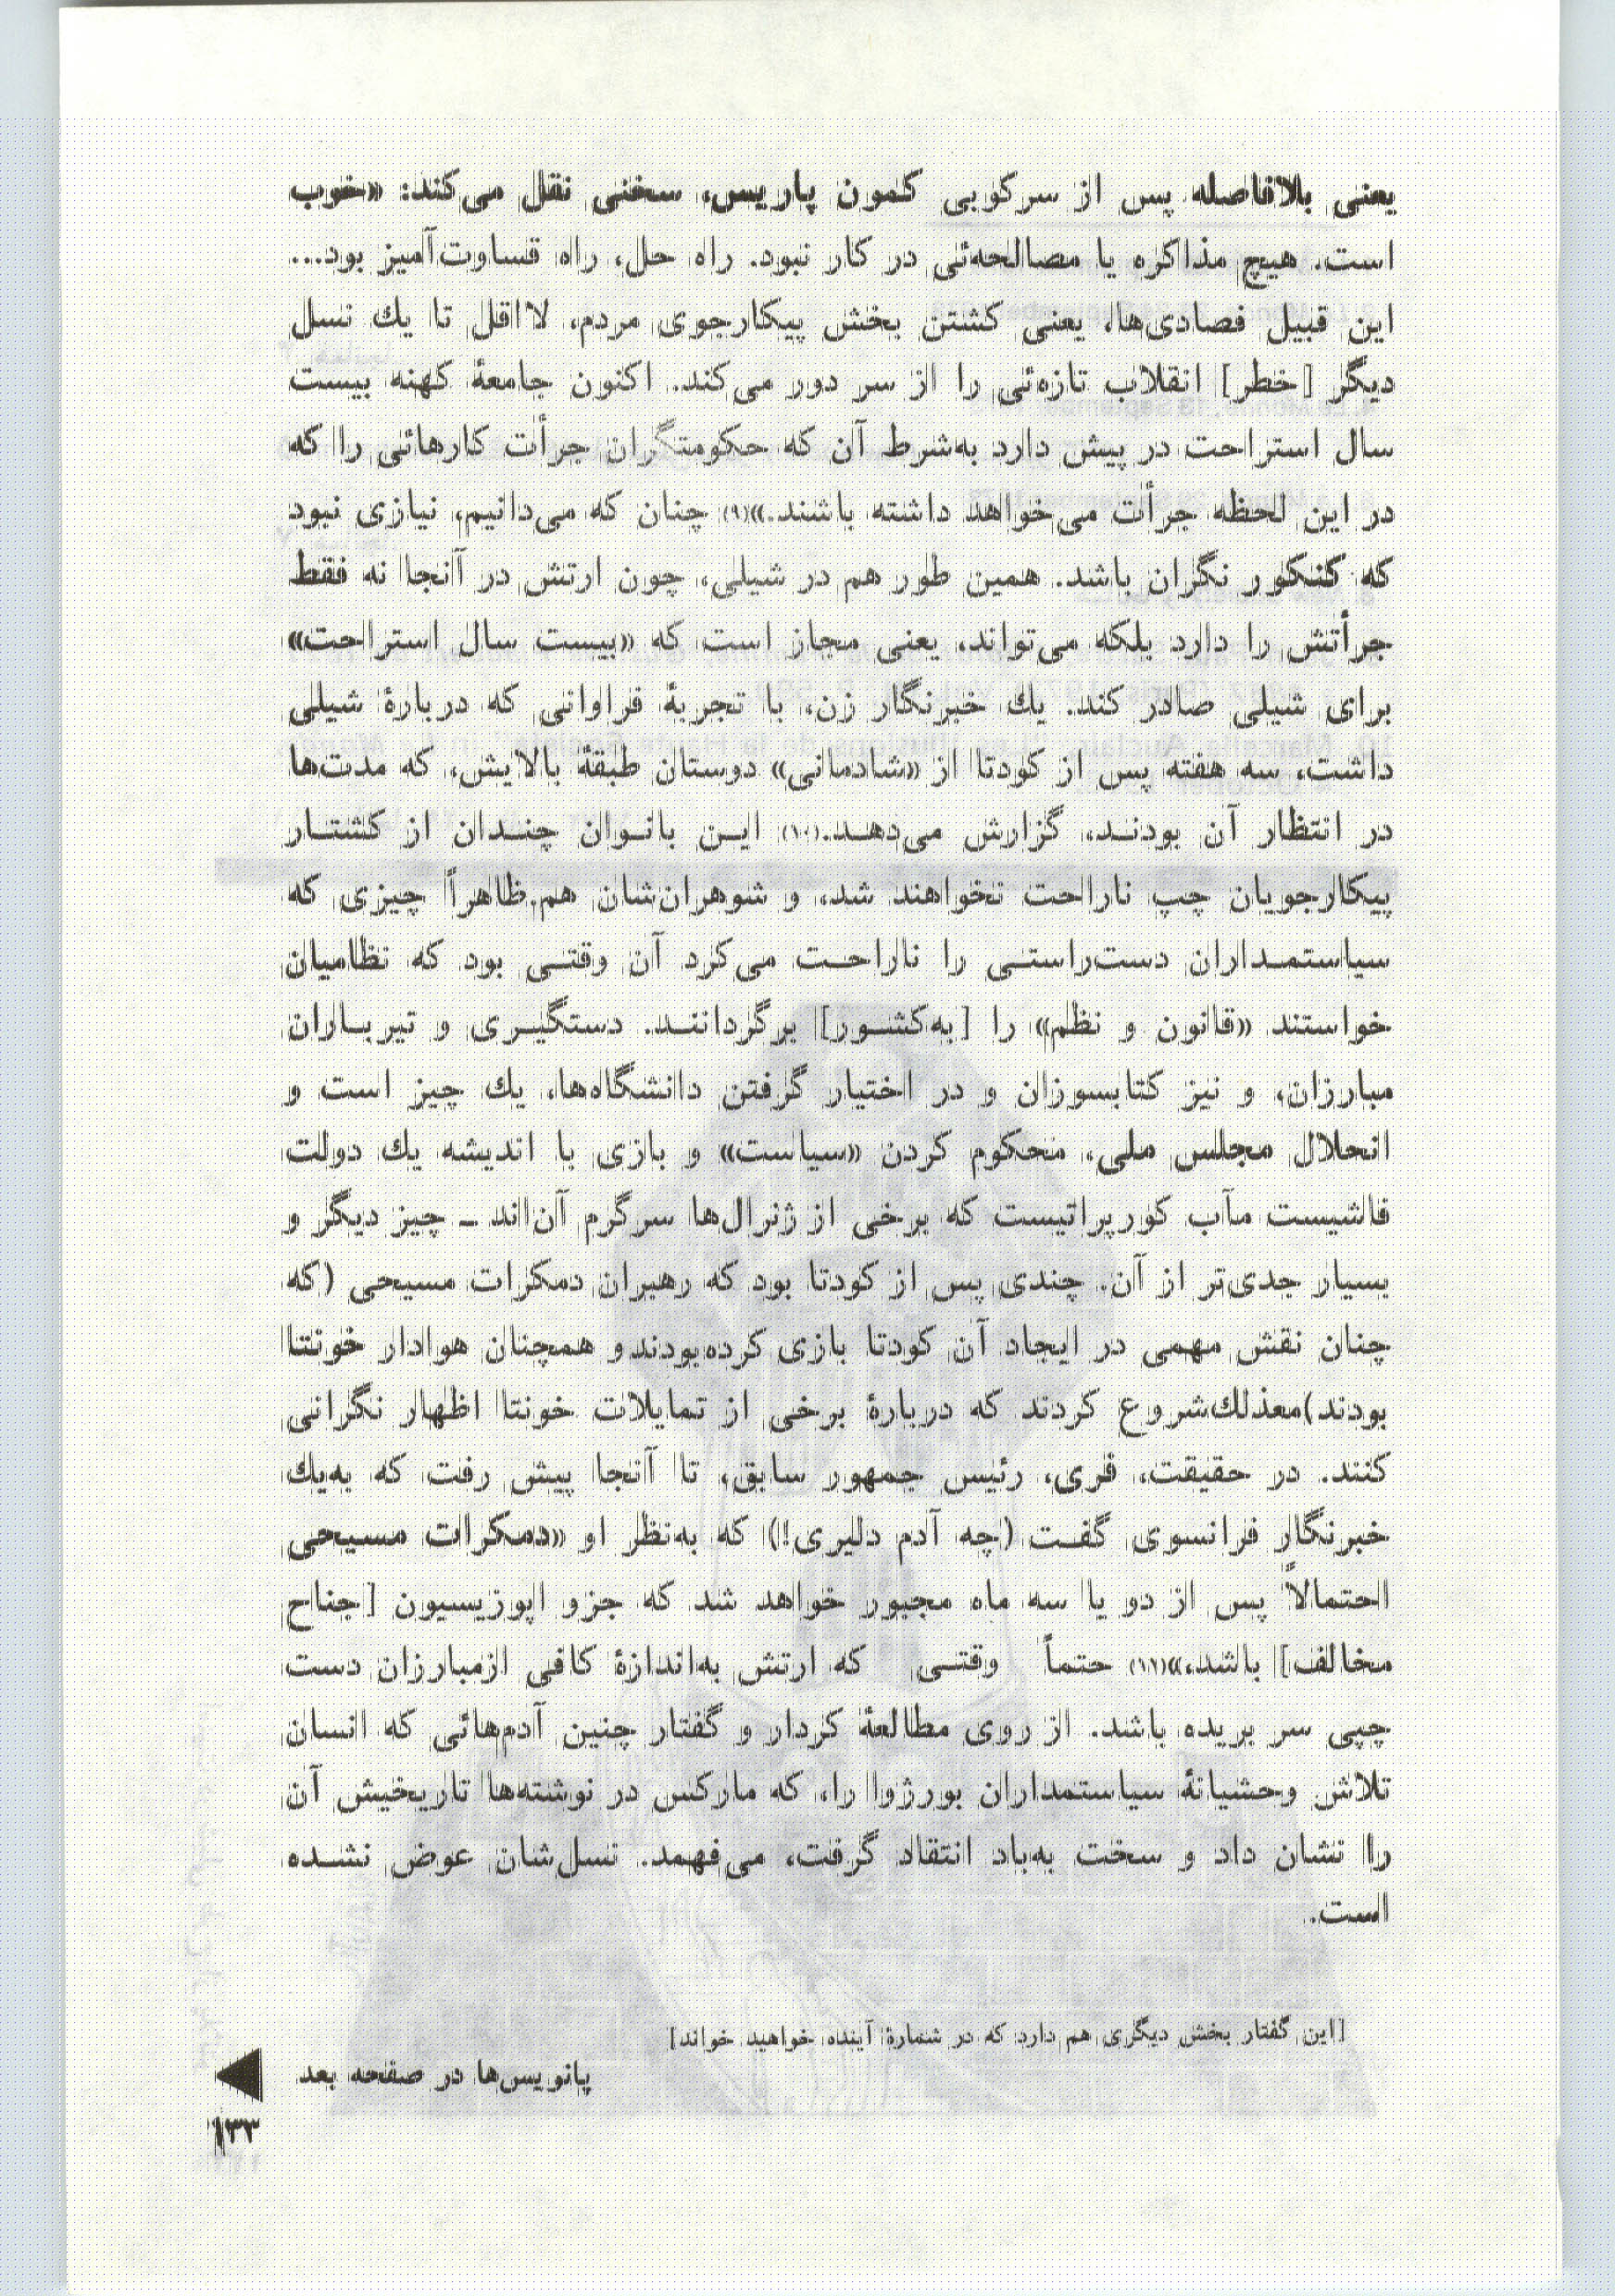 یعنی بلافاصله پس از سرکوبی کمون پاریس، سخنی نقل می‌کند: «خوب
است. هیچ مذاکره یا مصالحه‌ئی در کار نبود. راه حل، راه قساوت‌آمیز بود...
این قبیل فصادی‌ها، یعنی کشتن بخش پیکارجوی مردم، لااقل تا یك نسل
دیگر [خطر] انقلاب تازه‌ئی را از سر دور می‌کند. اکنون جامعهٔ کهنه بیست
سال استراحت در پیش دارد به‌شرط آن که حکومتگران جرأت کارهائی را که
در این لحظه جرأت می‌خواهد داشته باشند.»(۹) چنان که می‌دانیم، نیازی نبود
که کنکور نگران باشد. همین طور هم در شیلی، چون ارتش در آنجا نه فقط
جرأتش را دارد بلکه می‌تواند، یعنی مجاز است که «بیست سال استراحت»
برای شیلی صادر کند. یك خبرنگار زن، با تجربهٔ فراوانی که دربارهٔ شیلی
داشت، سه هفته پس از کودتا از «شادمانی» دوستان طبقهٔ بالایش، که مدت‌ها
در انتظار آن بودند، گزارش می‌دهد.(۱۰) این بانوان چندان از کشتار
پیکارجویان چپ ناراحت نخواهند شد، و شوهران‌شان هم. ظاهراً چیزی که
سیاستمداران دست‌راستی را ناراحت می‌کرد آن وقتی بود که نظامیان
خواستند «قانون و نظم» را [به‌کشور] برگردانند. دستگیری و تیرباران
مبارزان، و نیز کتابسوزان و در اختیار گرفتن دانشگاه‌ها، یك چیز است و
انحلال مجلس ملی، محکوم کردن «سیاست» و بازی با اندیشه یك دولت
فاشیست مآب کورپراتیست که برخی از ژنرال‌ها سرگرم آن‌اند ـ چیز دیگر و
بسیار جدی‌تر از آن. چندی پس از کودتا بود که رهبران دمکرات مسیحی (که
چنان نقش مهمی در ایجاد آن کودتا بازی کرده‌بودند و همچنان هوادار خونتا
بودند)معذلك‌شروع کردند که دربارهٔ برخی از تمایلات خونتا اظهار نگرانی
کنند. در حقیقت، فری، رئیس جمهور سابق، تا آنجا پیش رفت که به‌یك
خبرنگار فرانسوی گفت (چه آدم دلیری!) که به‌نظر او «دمکرات مسیحی
احتمالاً پس از دو یا سه ماه مجبور خواهد شد که جزو اپوزیسیون [جناح
مخالف] باشد.»(۱۱) حتماً وقتی که ارتش به‌اندازهٔ کافی ازمبارزان دست
چپی سر بریده باشد. از روی مطالعهٔ کردار و گفتار چنین آدم‌هائی که انسان
تلاش وحشیانهٔ سیاستمداران بورژوا را، که مارکس در نوشته‌ها تاریخیش آن
را نشان داد و سخت به‌باد انتقاد گرفت، می‌فهمد. نسل‌شان عوض نشده
است.
[این گفتار بخش دیگری هم دارد که در شمارهٔ آینده خواهید خواند]
پانویس‌ها در صفحه بعد
۱۳۳